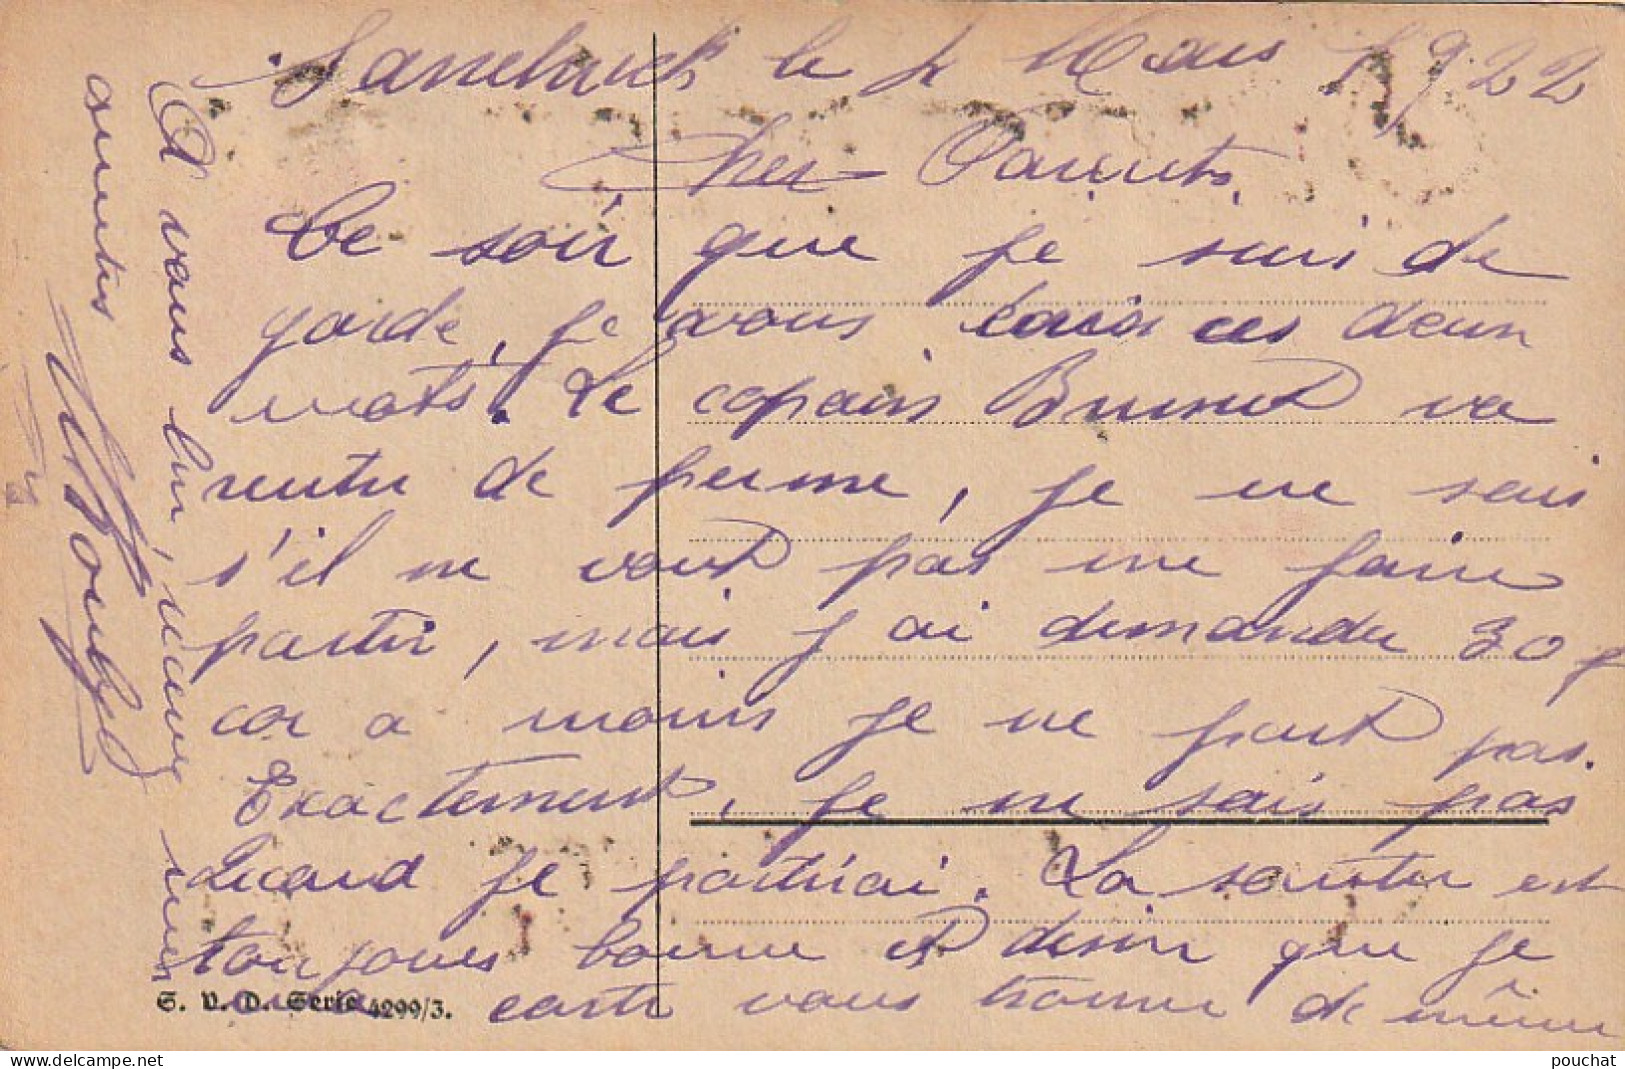 le 4 Mars 1922
Cher Parents.
Ce soir que je suis de
garde, je vous ces deux
mots. Le copain Brunet va
rentre de perme, je ne sais
s'il ne vont pas me faire
partir, mais j'ai demander 30 f
car a moins je ne part pas.
Exactement, je ne sais pas
Quand je partirai. La est
toujours bonne et desir que je
carte vous trouve de même
A vous lire, recevez mes
amities
S. V. D. Serie 4299/3.
pouchat